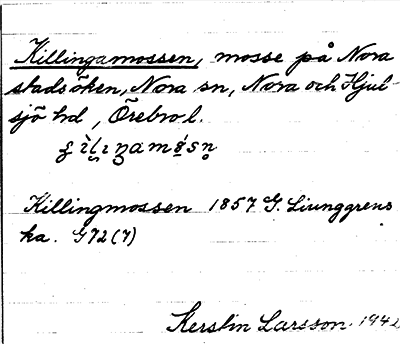 Killingamossen, mosse på Nora
stadsöken, Nora sn, Nora och Hjul-
sjö hd, Örebro l.
Killingmossen 1857 G. Ljunggrens
ka. G72(7)
Kerstin Larsson 1942